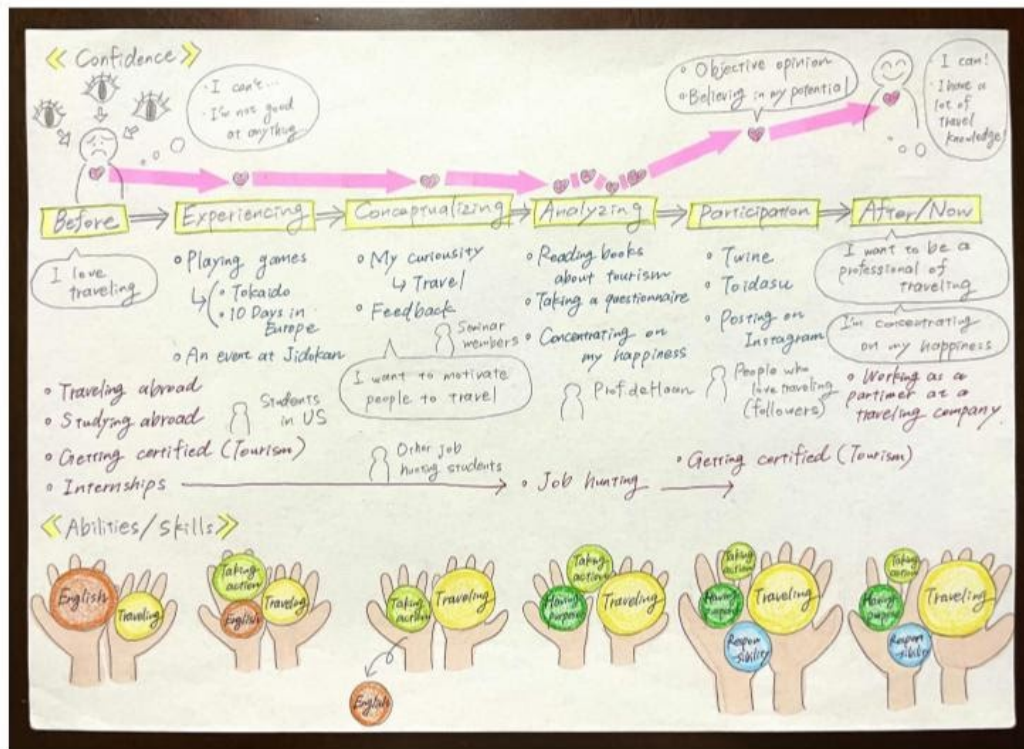 Confidence
· I can't...
· I'm not good
at anything
• Objective opinion
• Believing in my potential
· I can!
· I have a
lot of
travel
knowledge!
Before
Experiencing
Conceptualizing
Analyzing
Participation
After/Now
I love
traveling
• Playing games
• Tokaido
• 10 Days in
Europe
• An event at Jidokan
• My curiousity
Travel
• Feedback
Seminar
members
I want to motivate
people to travel
• Reading books
about tourism
• Taking a questionnaire
• Concentrating on
my happiness
Prof. deHaan
• Twine
• Toidasu
• Posting on
Instagram
People who
love traveling
(followers)
I want to be a
professional of
traveling
I'm concentrating
on my happiness
• Working as a
partimer at a
traveling company.
• Traveling abroad
• Studying abroad
• Getting certified (Tourism)
• Internships
Students
in US
Other job
hunting students
• Job hunting
• Getting certified (Tourism)
Abilities/Skills
English
Traveling
Taking
action
English
Traveling
Taking
action
Traveling
English
Taking
action
Having
purpose
Traveling
Taking
action
Having
purpose
Traveling
Respon
sibility
Taking
action
Having
purpose
Traveling
Respon
sibility